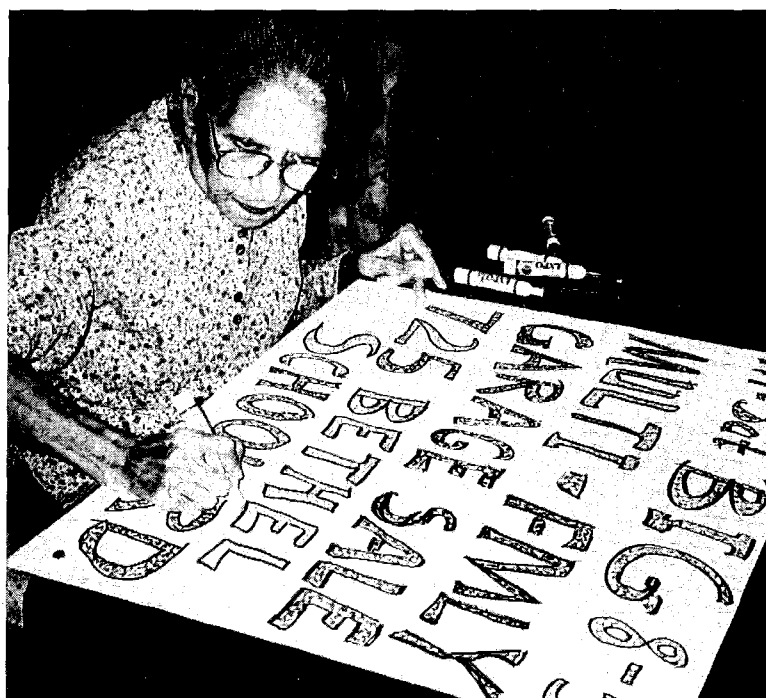 Sat BIG 8-
MULTI-FMLY
GARAGE SALE
725 BETHEL
SCHOOL RD